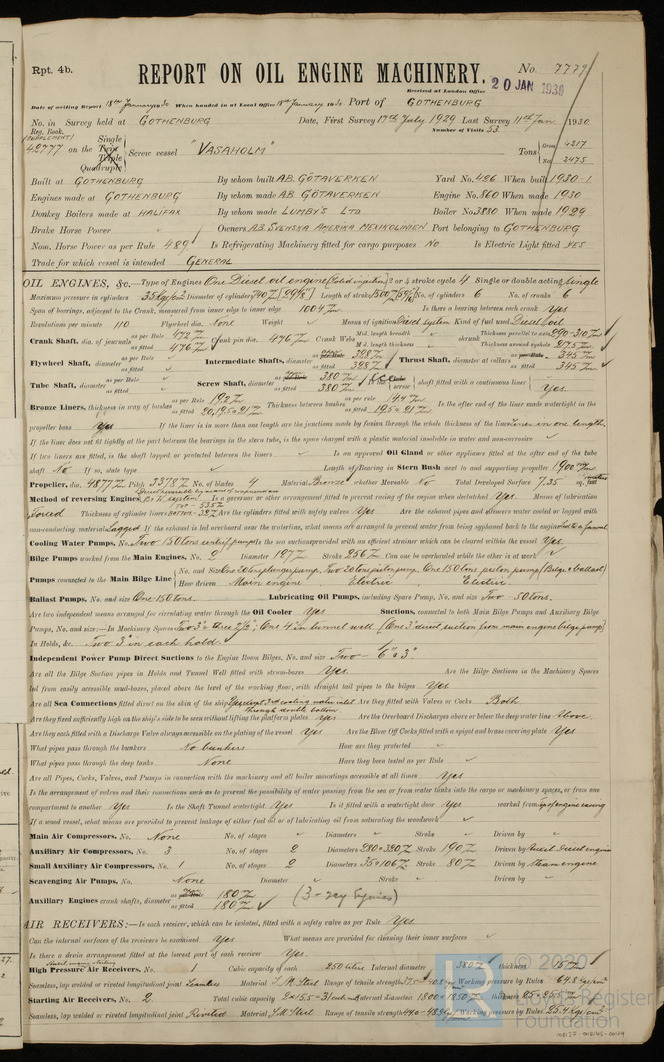 Rpt. 4b. REPORT ON OIL ENGINE MACHINERY. No. 7779
Received at London Office 20 JAN 1930
Date of writing Report 18th January 1930 When handed in at Local Office 18th January 1930 Port of GOTHENBURG
No. in Survey held at GOTHENBURG Date, First Survey 17th July 1929 Last Survey 11th Jan. 1930
Reg. Book. Number of Visits 53
(SUPPLEMENT) Single
42777 on the Twin Triple Quadruple Screw vessel "VASAHOLM" Tons Gross 4217 Net 2475
Built at GOTHENBURG By whom built A.B. GÖTAVERKEN Yard No. 426 When built 1930-1
Engines made at GOTHENBURG By whom made A.B. GÖTAVERKEN Engine No. 860 When made 1930
Donkey Boilers made at HALIFAX By whom made LUMBY'S LTD Boiler No. 3830 When made 1929
Brake Horse Power Owners A.B. SVENSKA AMERIKA MEXIKOLINIEN Port belonging to GOTHENBURG
Nom. Horse Power as per Rule 489 Is Refrigerating Machinery fitted for cargo purposes NO Is Electric Light fitted YES
Trade for which vessel is intended GENERAL
OIL ENGINES, &c.—Type of Engines One Diesel oil engine (Solid injection) 2 or 4 stroke cycle 4 Single or double acting Single
Maximum pressure in cylinders 35 kg/cm2 Diameter of cylinders 740 Length of stroke 1500 No. of cylinders 6 No. of cranks 6
Span of bearings, adjacent to the Crank, measured from inner edge to inner edge 1004 Is there a bearing between each crank Yes
Revolutions per minute 110 Flywheel dia. None Weight Means of ignition Diesel system Kind of fuel used Diesel oil
Crank Shaft, dia. of journals as per Rule 472 as fitted 476 Crank pin dia. 476 Crank Webs Mid. length breadth Mid. length thickness shrunk Thickness parallel to axis 290-310 Thickness around eyehole 275
Flywheel Shaft, diameter as per Rule as fitted Intermediate Shafts, diameter as per Rule 328 as fitted 328 Thrust Shaft, diameter at collars as per Rule 345 as fitted 345
Tube Shaft, diameter as per Rule as fitted Screw Shaft, diameter as per Rule 380 as fitted 380 Is the screw shaft fitted with a continuous liner Yes
Bronze Liners, thickness in way of bushes as per Rule 19.2 as fitted 20,195 & 21 Thickness between bushes as per rule 14.4 as fitted 19.5 & 21 Is the after end of the liner made watertight in the
propeller boss Yes If the liner is in more than one length are the junctions made by fusion through the whole thickness of the liner Liner in one length
If the liner does not fit tightly at the part between the bearings in the stern tube, is the space charged with a plastic material insoluble in water and non-corrosive
If two liners are fitted, is the shaft lapped or protected between the liners Is an approved Oil Gland or other appliance fitted at the after end of the tube
shaft No If so, state type Length of Bearing in Stern Bush next to and supporting propeller 1900
Propeller, dia. 4877 Pitch 3378 No. of blades 4 Material Bronze whether Moveable No Total Developed Surface 7.35 sq. feet
Method of reversing Engines Is a governor or other arrangement fitted to prevent racing of the engine when declutched Yes Means of lubrication
Forced Thickness of cylinder liners Are the cylinders fitted with safety valves Yes Are the exhaust pipes and silencers water cooled or lagged with
non-conducting material Lagged If the exhaust is led overboard near the waterline, what means are arranged to prevent water being syphoned back to the engine Led to a funnel
Cooling Water Pumps, No. Two 150 tons centrif. pumps Is the sea suction provided with an efficient strainer which can be cleared within the vessel Yes
Bilge Pumps worked from the Main Engines, No. 2 Diameter 127 Stroke 256 Can one be overhauled while the other is at work
Pumps connected to the Main Bilge Line No. and Size One 20 tons plunger pump, Two 20 tons piston pump, One 150 tons piston pump (Bilge & ballast)
How driven Main engine Electric Electric
Ballast Pumps, No. and size One 150 tons Lubricating Oil Pumps, including Spare Pump, No. and size Two - 50 tons
Are two independent means arranged for circulating water through the Oil Cooler Yes Suctions, connected to both Main Bilge Pumps and Auxiliary Bilge
Pumps, No. and size:—In Machinery Spaces Two 3" & three 2½", One 4" in tunnel well (One 3" direct suction from main engine bilge pump)
In Holds, &c. Two 3" in each hold.
Independent Power Pump Direct Suctions to the Engine Room Bilges, No. and size Two - 6" & 3"
Are all the Bilge Suction pipes in Holds and Tunnel Well fitted with strum-boxes Yes Are the Bilge Suctions in the Machinery Spaces
led from easily accessible mud-boxes, placed above the level of the working floor, with straight tail pipes to the bilges Yes
Are all Sea Connections fitted direct on the skin of the ship Yes except 3rd cooling water inlet through double bottom Are they fitted with Valves or Cocks Both
Are they fixed sufficiently high on the ship's side to be seen without lifting the platform plates yes Are the Overboard Discharges above or below the deep water line Above
Are they each fitted with a Discharge Valve always accessible on the plating of the vessel Yes Are the Blow Off Cocks fitted with a spigot and brass covering plate Yes
What pipes pass through the bunkers No bunkers How are they protected
What pipes pass through the deep tanks None Have they been tested as per Rule
Are all Pipes, Cocks, Valves, and Pumps in connection with the machinery and all boiler mountings accessible at all times Yes
Is the arrangement of valves and their connections such as to prevent the possibility of water passing from the sea or from water tanks into the cargo or machinery spaces, or from one
compartment to another Yes Is the Shaft Tunnel watertight Yes Is it fitted with a watertight door Yes worked from top of engine casing
If a wood vessel, what means are provided to prevent leakage of either fuel oil or of lubricating oil from saturating the woodwork
Main Air Compressors, No. None No. of stages Diameters Stroke Driven by
Auxiliary Air Compressors, No. 3 No. of stages 2 Diameters 280 & 320 Stroke 190 Driven by Auxil. Diesel engine
Small Auxiliary Air Compressors, No. 1 No. of stages 2 Diameters 35 & 106 Stroke 80 Driven by Steam engine
Scavenging Air Pumps, No. None Diameter Stroke Driven by
Auxiliary Engines crank shafts, diameter as per Rule 180 as fitted 180 (3-cy Engines)
AIR RECEIVERS:—Is each receiver, which can be isolated, fitted with a safety valve as per Rule Yes
Can the internal surfaces of the receivers be examined Yes What means are provided for cleaning their inner surfaces
Is there a drain arrangement fitted at the lowest part of each receiver Yes.
High Pressure Air Receivers, No. 1 Cubic capacity of each 250 litres Internal diameter 380 thickness 15
Seamless, lap welded or riveted longitudinal joint Seamless Material S.M. Steel Range of tensile strength Working pressure by Rules 64.8 kgs/cm2
Starting Air Receivers, No. 2 Total cubic capacity Internal diameter 1800 & 1850 thickness
Seamless, lap welded or riveted longitudinal joint Riveted Material S.M. Steel Range of tensile strength Working pressure by Rules 25.4 kgs/cm2
© 2020
Lloyd's Register
Foundation